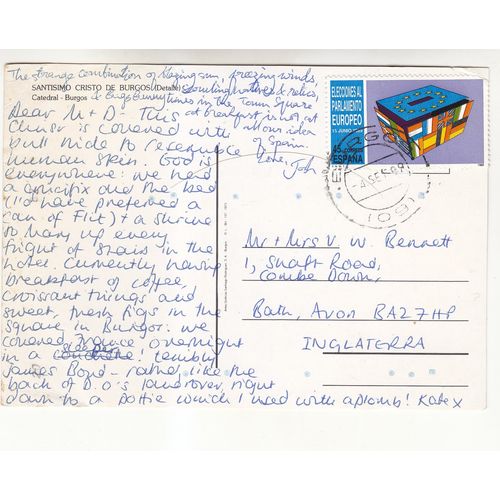 The strange combination of blazing sun, freezing winds,
SANTISIMO CRISTO DE BURGOS (Detalle)
Catedral - Burgos
& relics,
in the Town Square
at breakfast is not, at
all our idea
of Spain.
Love, Josh
Dear M + D - This
Christ is covered with
bull hide to resemble
human skin. God is
everywhere: we need
a crucifix and the bed
(I'd have preferred a
can of Flit) + a shrine
to Mary up every
flight of stairs in the
hotel. Currently having
breakfast of coffee,
croissant things and
sweet, fresh figs in the
square in Burgos. We
covered France overnight
in a couchette! terribly
James Bond - rather like the
back of D.O's landrover, right
down to a pottie which I used with aplomb! Kate x
ELECCIONES AL
PARLAMENTO
EUROPEO
15 JUNIO 1989
45 CORREOS
ESPAÑA
SET. 89
Mr + Mrs V. W. Bennett
1, Shaft Road,
Combe Down,
Bath, Avon BA2 7HP
INGLATERRA